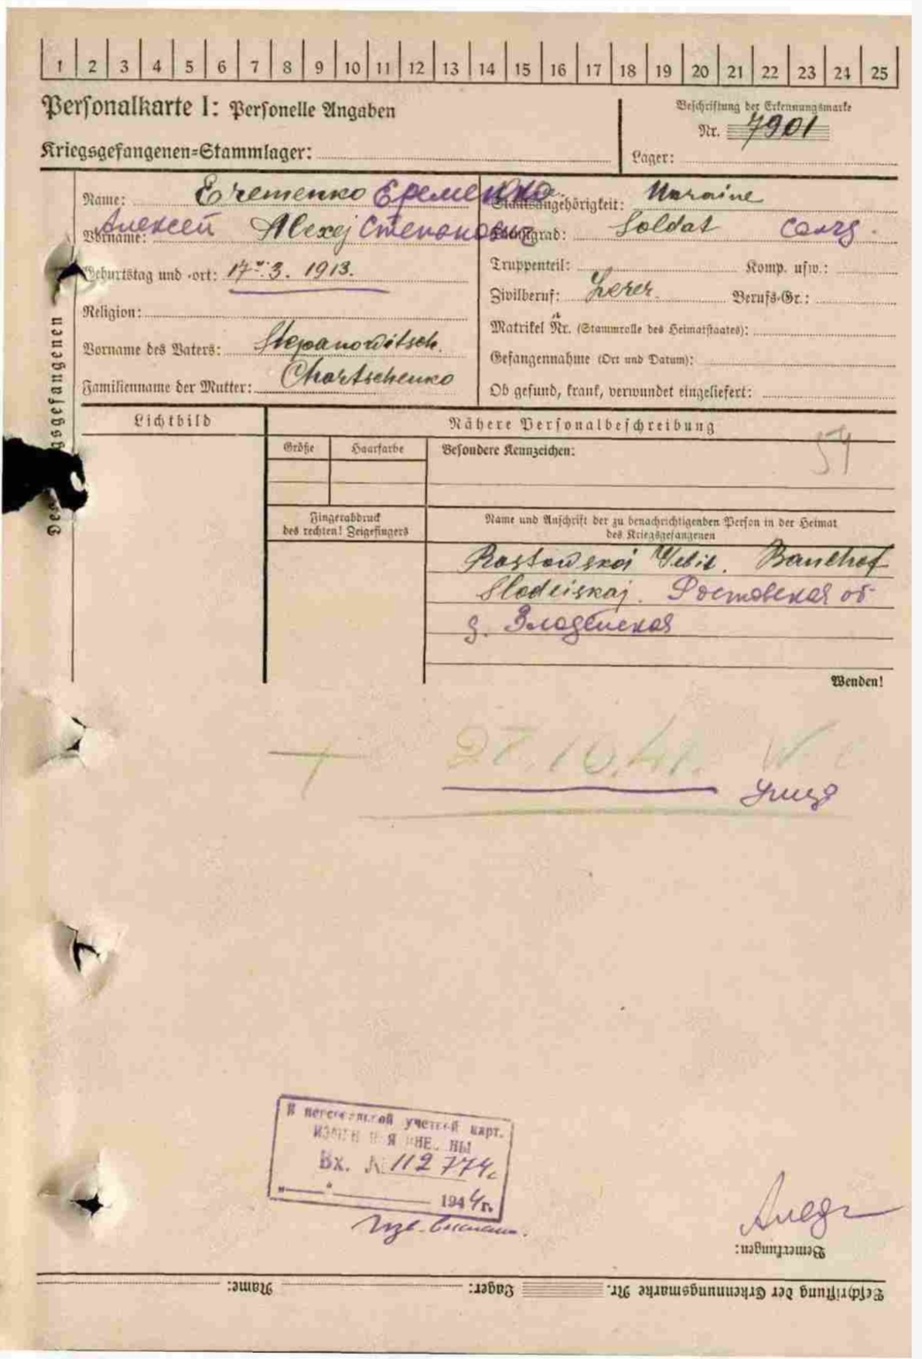 1 2 3 4 5 6 7 8 9 10 11 12 13 14 15 16 17 18 19 20 21 22 23 24 25
Personalkarte I: Personelle Angaben
Beschriftung der Erkennungsmarke
Nr. 7901
Kriegsgefangenen-Stammlager:
Lager:
Name: Eremenko Еременко
Staatsangehörigkeit: Ukraine
Vorname: Алексей Alexej Степанович
Dienstgrad: Soldat солд.
Geburtstag und -ort: 17. 3. 1913.
Truppenteil: Komp. usw.:
Religion:
Zivilberuf: Berufs-Gr.:
Vorname des Vaters: Stepanowitsch.
Matrikel Nr. (Stammrolle des Heimatstaates):
Gefangennahme (Ort und Datum):
Familienname der Mutter: Chartschenko
Ob gesund, krank, verwundet eingeliefert:
Des gsgefangenen
Lichtbild
Nähere Personalbeschreibung
Größe Haarfarbe Besondere Kennzeichen:
54
Fingerabdruck
des rechten! Zeigefingers
Name und Anschrift der zu benachrichtigenden Person in der Heimat
des Kriegsgefangenen
Rostowskoi
Ростовская об
Wenden!
27.10.41.
В персональной учетной карт.
Вх. № 112774
1944г.
Bemerkungen:
Beschriftung der Erkennungsmarke Nr. Lager: Name: